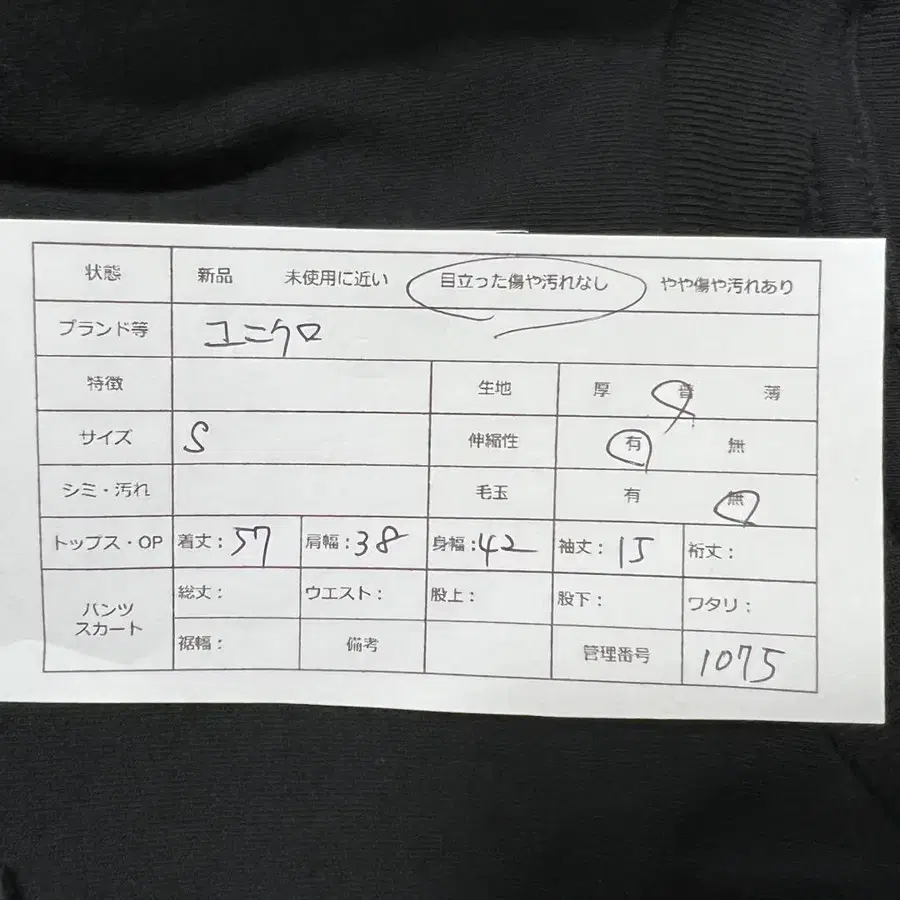 状態 新品 未使用に近い 目立った傷や汚れなし やや傷や汚れあり
ブランド等 ユニクロ
特徴 生地 厚 普 薄
サイズ S 伸縮性 有 無
シミ・汚れ 毛玉 有 無
トップス・OP 着丈：57 肩幅：38 身幅：42 袖丈：15 裄丈：
パンツ
スカート
総丈： ウエスト： 股上： 股下： ワタリ：
裾幅： 備考 管理番号 1075